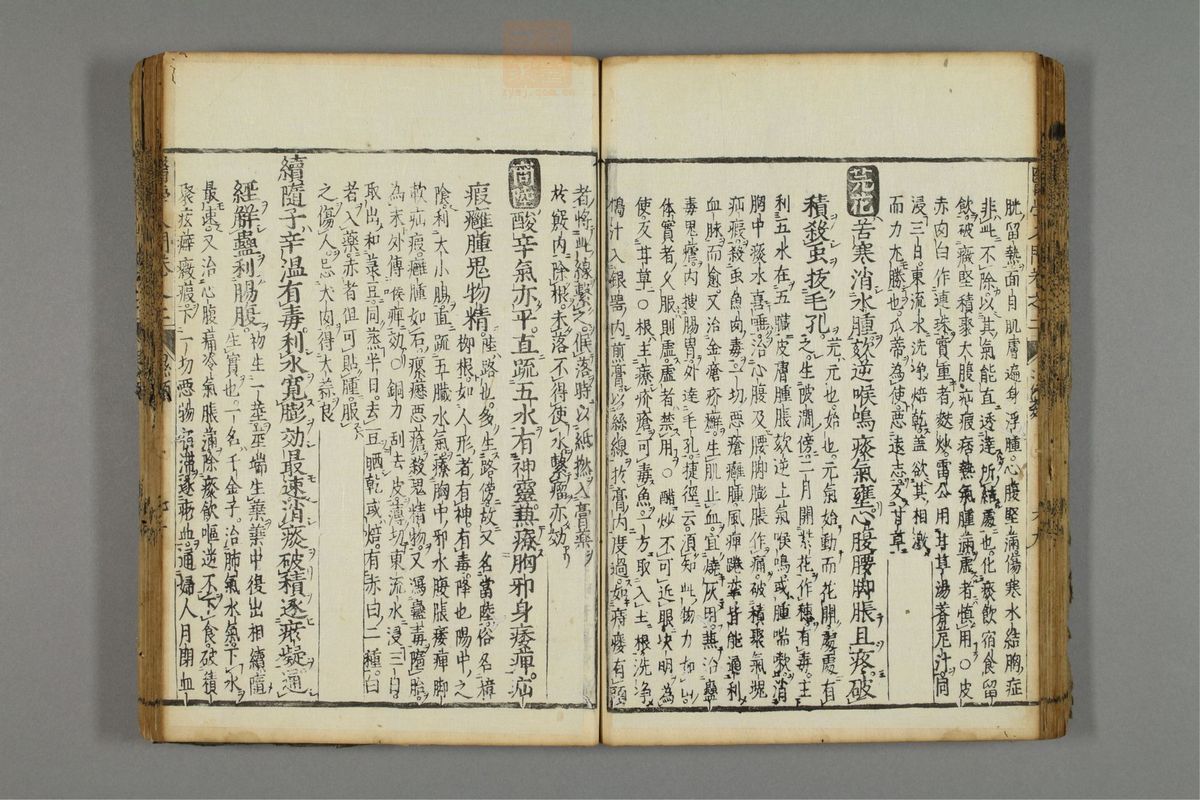 胱留熱面目肌膚遍身浮腫心腹堅痛傷寒水結胸症
非此不除以其氣能直透達所結處也化痰飲宿食留
飲破癥堅積聚大腹疝瘕痞熱氣腫滿虛者慎用○皮
赤肉白作連珠實重者麩炒雷公用甘草湯薺苨汁同
浸三日東流水洗焙乾蓋欲其相激
而力尤勝也瓜蒂為使惡遠志反甘草
芫花苦寒消水腫咳逆喉鳴痰氣壅心腹腰脚脹且疼破
積殺虫拔毛孔芫元也始也元氣始動而花開處處有
之生陂澗傍二月開紫花作穗有毒主
利五水在五臟皮膚腫脹咳逆上氣喉鳴或腫喘嗽消
胸中痰水喜唾治心腹及腰脚膨脹作痛破積聚氣塊
疝瘕殺虫魚肉毒一切惡瘡癰腫風痺踡攣甘能通利
血脉而愈又治金瘡疥癬生肌止血宜燒灰用兼治蠱
毒鬼瘧內搜腸胃外達毛孔捷徑云須知此物力如山
体實者久服則虛虛者禁用○醋炒不可近眼決明為
使反甘草○根主療疥瘡可毒魚一方取入土根洗淨
搗汁入銀器內煎膏以絲線於膏內度過如痔瘻有頭
者將此線繫之候落時以紙撚入膏藥
於竅內除根未落不得使水繫瘤亦効
商陸酸辛氣亦平直疏五水有神靈熱療胸邪身痿痺疝
瘕癰腫鬼物精陸路也多生路傍故又名當陸俗名樟
柳根如人形者有神有毒降也陽中之
陰利大小腸直疏五臟水氣療胸中邪水腹脹痿痺脚
軟疝瘕癰腫如石瘰癧惡瘡殺鬼精物又瀉蠱毒墮胎
為末外傅喉痺効○銅刀刮去皮薄切東流水浸三日
取出和菉豆同蒸半日去豆晒乾或焙有赤白二種白
者入藥赤者但可貼腫服
之傷人忌犬肉得大蒜良
續隨子辛温有毒利水寬膨効最速消痰破積逐瘀凝通
經解蠱利腸腹初生一莖莖端生葉葉中復出相續隨
生實也一名千金子治肺氣水氣下水
最速又治心腹痛冷氣脹滿除痰飲嘔逆不下食破積
聚痃癖癥瘕下一切惡物宿滯逐瘀血通婦人月閉血